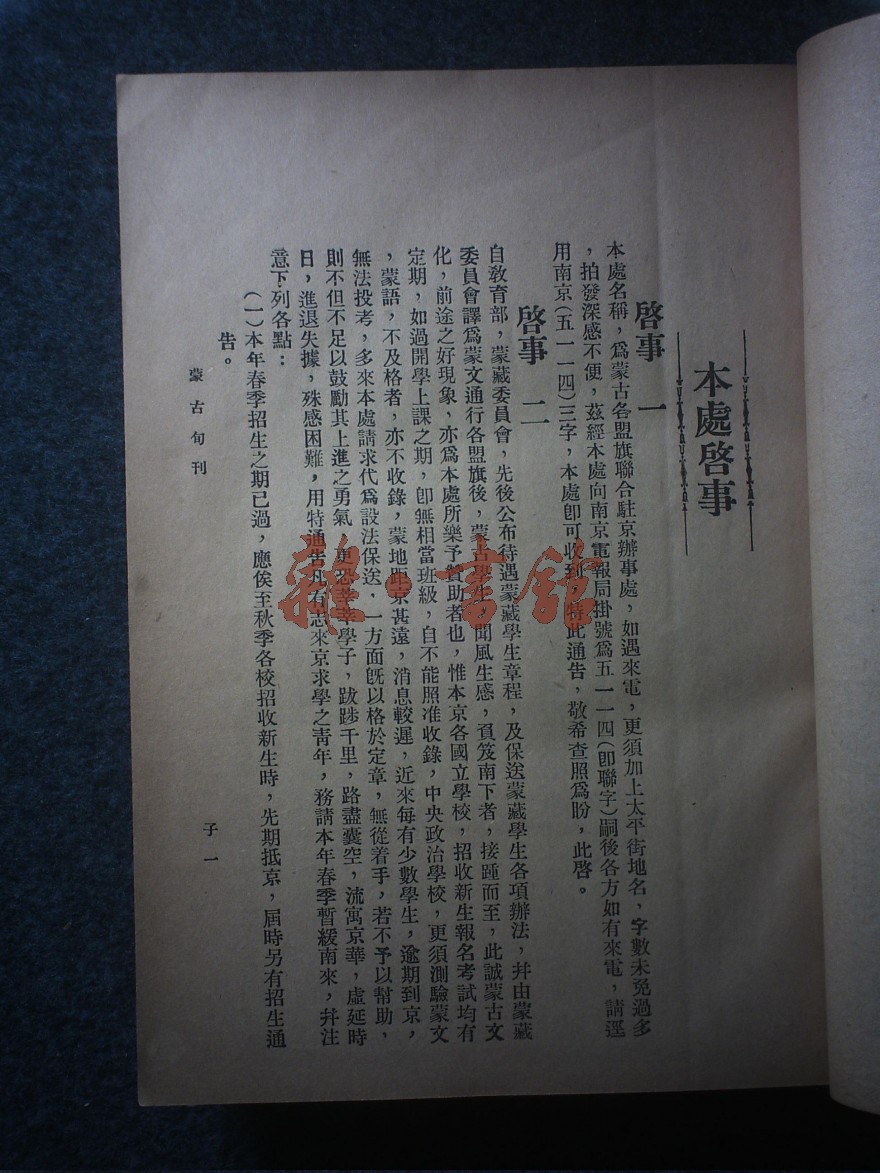 本處啓事
啓事 一
本處名稱，爲蒙古各盟旗聯合駐京辦事處，如遇來電，更須加上太平街地名，字數未免過多
，拍發深感不便，茲經本處向南京電報局掛號爲五一一四(即聯字)嗣後各方如有來電，請逕
用南京(五一一四)三字，本處卽可收到，特此通告，敬希查照爲盼，此啓。
啓事 二
自敎育部，蒙藏委員會，先後公布待遇蒙藏學生章程，及保送蒙藏學生各項辦法，幷由蒙藏
委員會譯爲蒙文通行各盟旗後，蒙古學生，聞風生感，負笈南下者，接踵而至，此誠蒙古文
化，前途之好現象，亦爲本處所樂予贊助者也，惟本京各國立學校，招收新生報名考試均有
定期，如過開學上課之期，卽無相當班級，自不能照准收錄，中央政治學校，更須測驗蒙文
，蒙語，不及格者，亦不收錄，蒙地距京甚遠，消息較遲，近來每有少數學生，逾期到京，
無法投考，多來本處請求代爲設法保送，一方面旣以格於定章，無從着手，若不予以幫助，
則不但不足以鼓勵其上進之勇氣，更恐莘莘學子，跋踄千里，路盡囊空，流寓京華，虛延時
日，進退失據，殊感困難，用特通告凡有志來京求學之靑年，務請本年春季暫緩南來，幷注
意下列各點：
(一)本年春季招生之期已過，應俟至秋季各校招收新生時，先期抵京，屆時另有招生通
告。
蒙古旬刊
子一
雜·書館